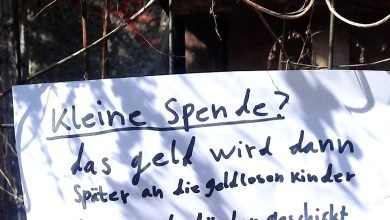 Kleine Spende?
das geld wird dann
Später an die geldlosen Kinder
geschickt